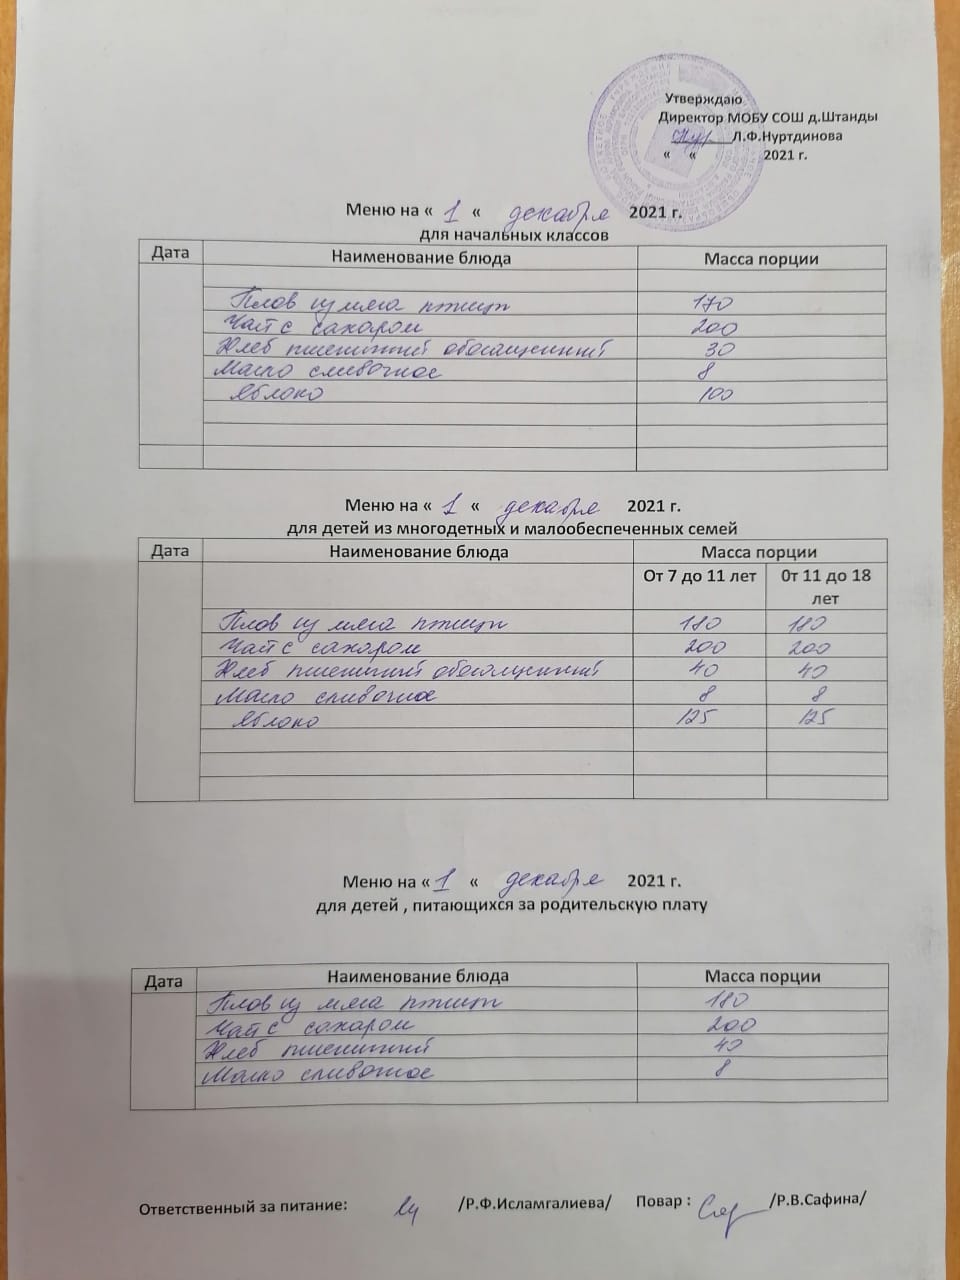 Утверждаю
Директор МОБУ СОШ д.Штанды
Л.Ф.Нуртдинова
« « 2021 г.
Меню на « 1 « декабря 2021 г.
для начальных классов
Дата Наименование блюда Масса порции
Плов из мяса птицы 170
Чай с сахаром 200
Хлеб пшеничный обогащенный 30
Масло сливочное 8
Яблоко 100
Меню на « 1 « декабря 2021 г.
для детей из многодетных и малообеспеченных семей
Дата Наименование блюда Масса порции
От 7 до 11 лет 0т 11 до 18
лет
Плов из мяса птицы 180 180
Чай с сахаром 200 200
Хлеб пшеничный обогащенный 40 40
Масло сливочное 8 8
Яблоко 125 125
Меню на « 1 « декабря 2021 г.
для детей , питающихся за родительскую плату
Дата Наименование блюда Масса порции
Плов из мяса птицы 180
Чай с сахаром 200
Хлеб пшеничный 40
Масло сливочное 8
Ответственный за питание: /Р.Ф.Исламгалиева/ Повар : /Р.В.Сафина/